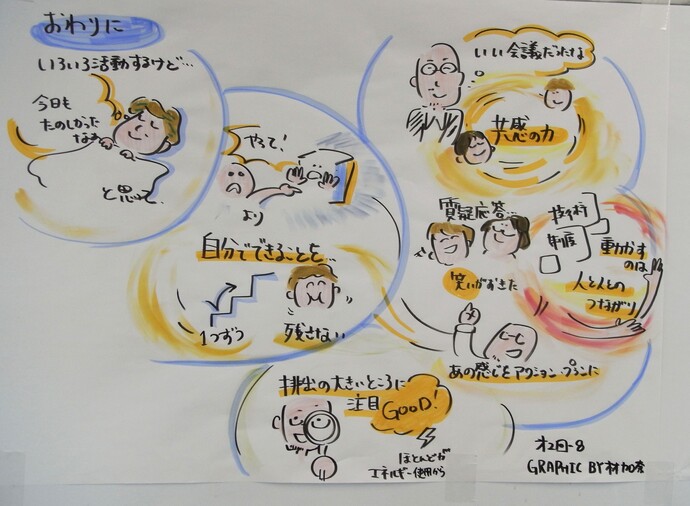 おわりに
いろいろ活動するけど…
今日も
たのしかった
なぁ
と思って、
やって!
より
自分でできることを…
1つずつ
残さない
いい会議だったな
共感の力
質疑応答…
笑いがおきた
技術
制度
動かす
のは
人と人との
つながり
あの感じをアクション・プランに
排出の大きいところに
注目
GOOD!
ほとんどが
エネルギー使用から
オ2回-8
GRAPHIC BY 材加奈